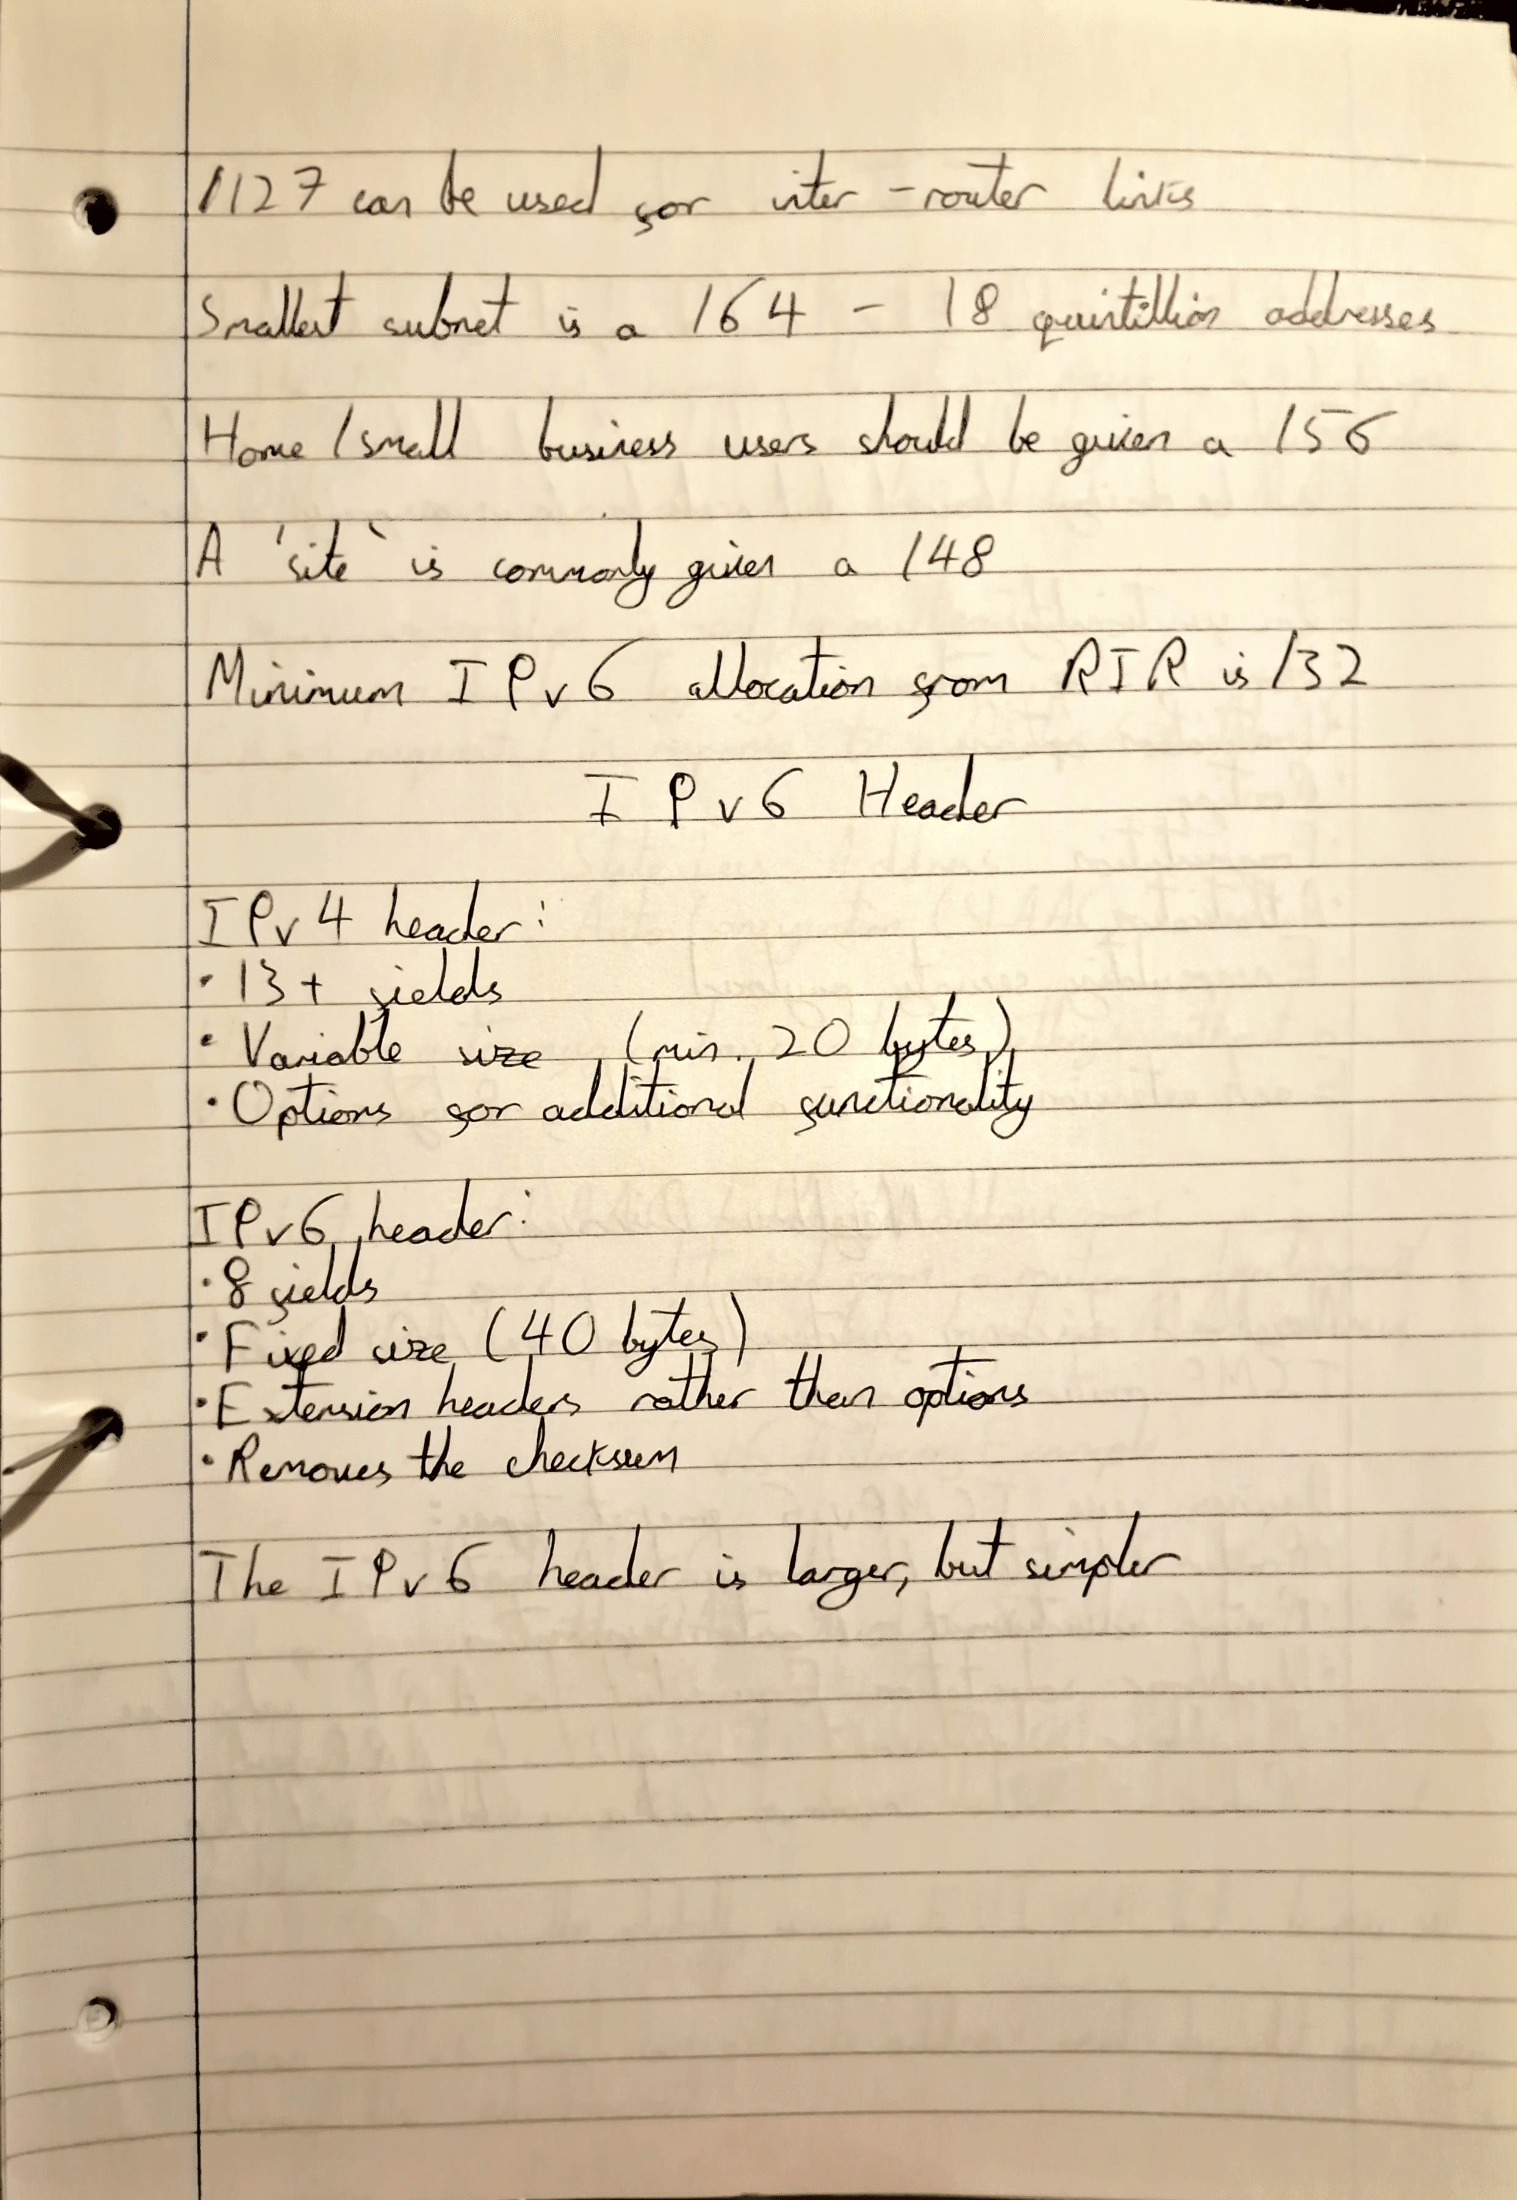 /127 can be used for inter-router links
Smallest subnet is a /64 - 18 quintillion addresses
Home/small business users should be given a /56
A 'site' is commonly given a /48
Minimum IPv6 allocation from RIR is /32
IPv6 Header
IPv4 header:
• 13+ fields
• Variable size (min. 20 bytes)
• Options for additional functionality
IPv6 header:
• 8 fields
• Fixed size (40 bytes)
• Extension headers rather than options
• Removes the checksum
The IPv6 header is larger, but simpler